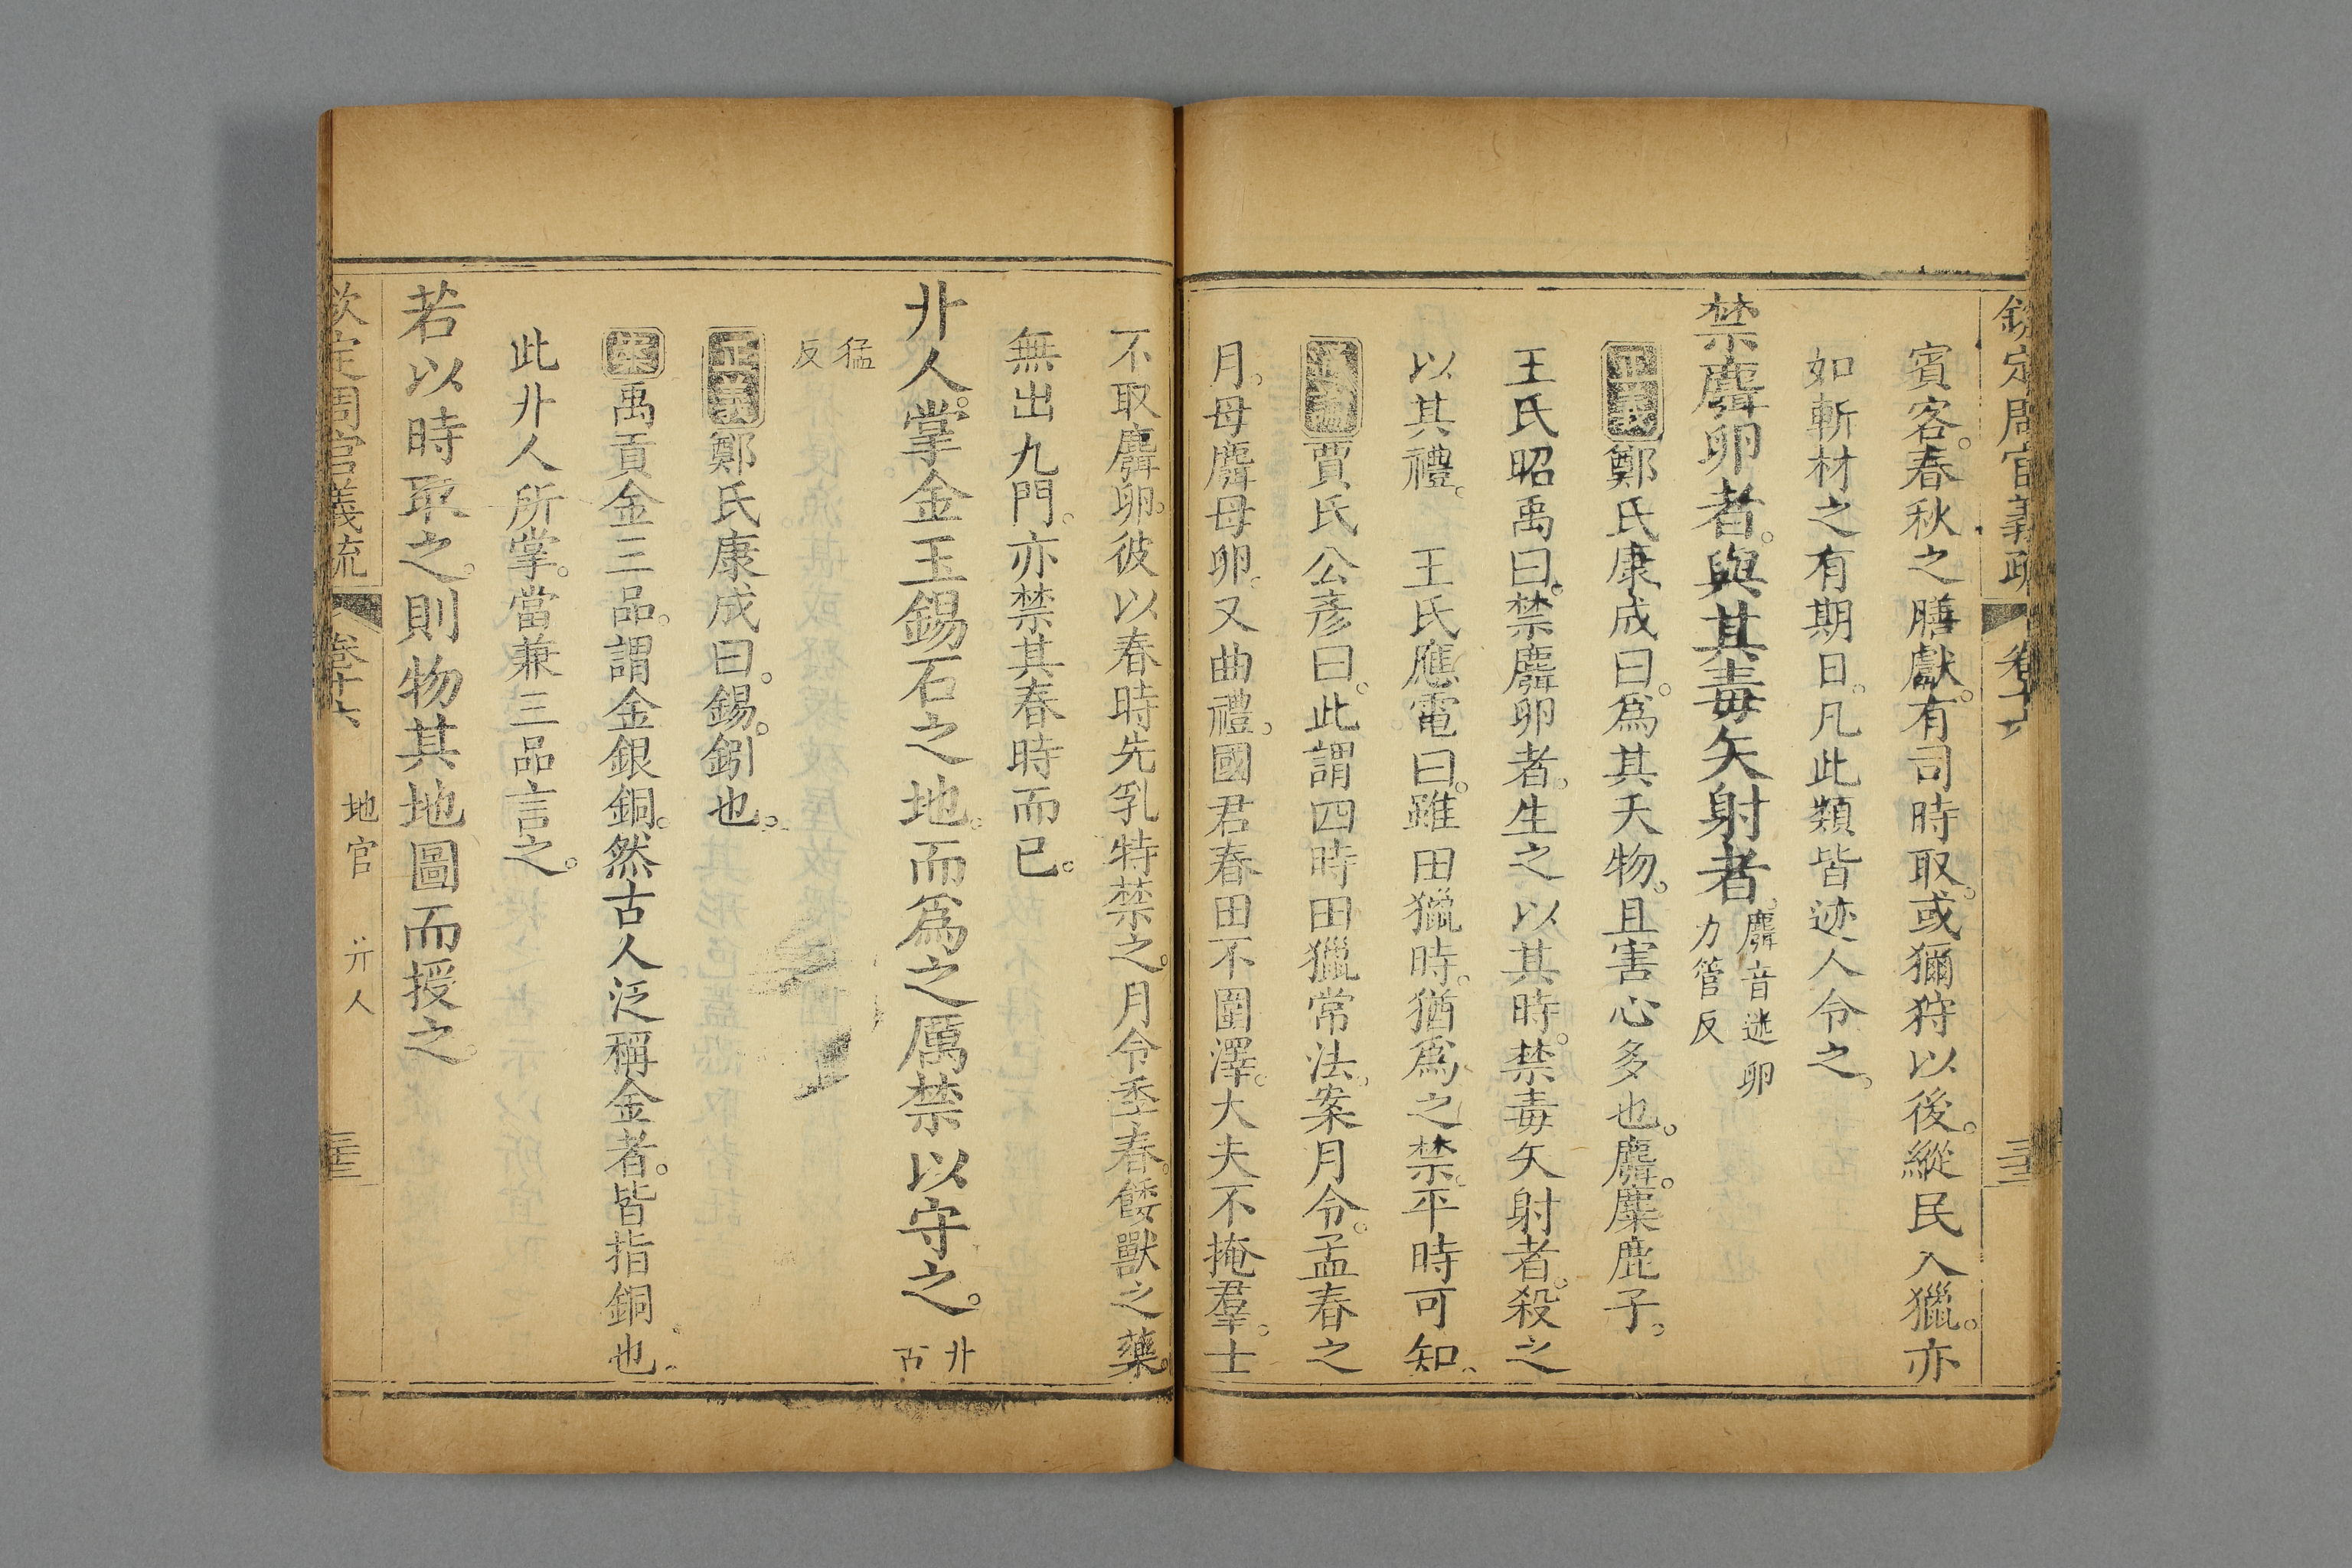 欽定周官義疏 卷十六
賓客。春秋之膳獻。有司時取。或獮狩以後。縱民入獵。亦
如斬材之有期日。凡此類皆迹人令之。
禁麛卵者。與其毒矢射者。麛音迷 卵
力管反
正義鄭氏康成曰。爲其夭物。且害心多也。麛。麋鹿子。
王氏昭禹曰。禁麛卵者。生之以其時。禁毒矢射者。殺之
以其禮。 王氏應電曰。雖田獵時。猶爲之禁。平時可知。
賈氏公彥曰。此謂四時田獵常法。案月令。孟春之
月。母麛母卵。又曲禮。國君春田不圍澤。大夫不掩羣。士
不取麛卵。彼以春時先乳特禁之。月令季春。餧獸之藥。
無出九門。亦禁其春時而已。
卝人。掌金玉錫石之地。而爲之厲禁以守之。卝
古
猛
反
正義鄭氏康成曰。錫。鈏也。
案禹貢金三品。謂金銀銅。然古人泛稱金者。皆指銅也。
此卝人所掌。當兼三品言之。
若以時取之。則物其地圖而授之。
欽定周官義疏 卷十六 地官 卝人